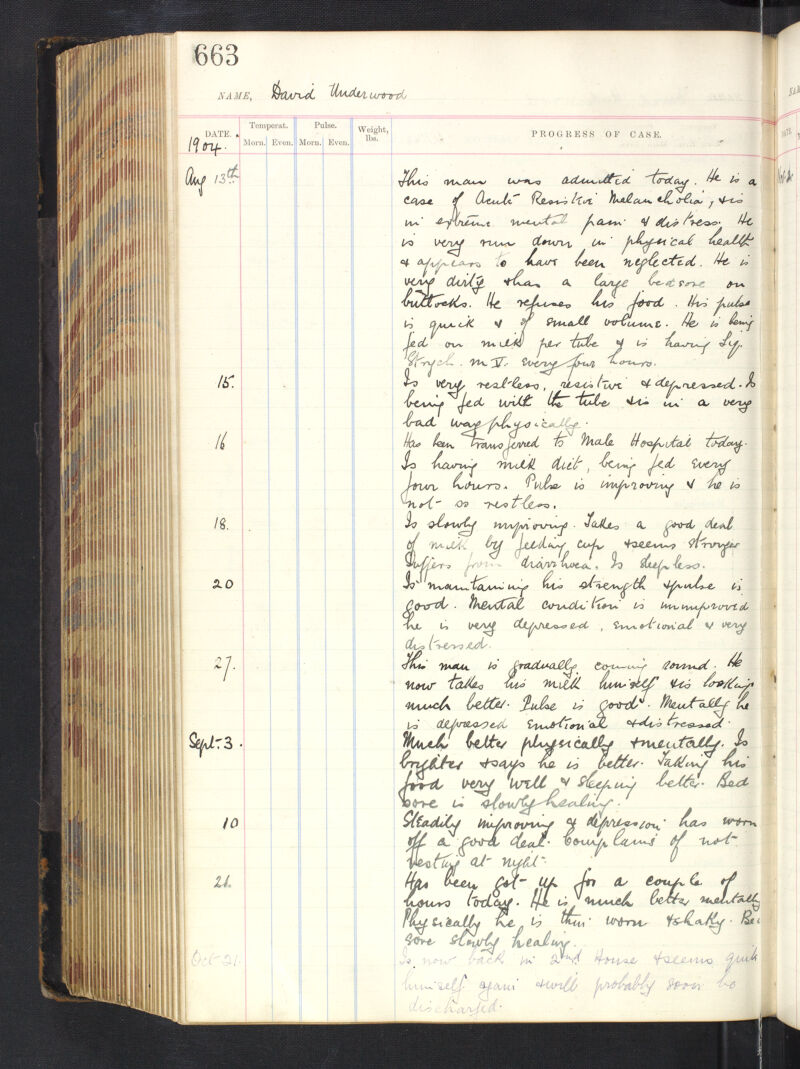 663
NAME, David Underwood
DATE. Temperat. Pulse. Weight, lbs. PROGRESS OF CASE.
Morn. Even. Morn. Even.
1904.
Aug 13th This man was admitted today. He is a
case of Acute Resistive Melancholia, & is
in extreme mental pain & distress. He
is very run down in physical health
& appears to have been neglected. He is
very dirty & has a large bedsore on
buttocks. He refuses his food. His pulse
is quick & of small volume. He is being
fed on milk per tube & is having Liq.
Strych. m V. every four hours.
15. Is very restless, resistive & depressed. Is
being fed with the tube & is in a very
bad way physically.
16 Has been transferred to Male Hospital today.
Is having milk diet, being fed every
four hours. Pulse is improving & he is
not so restless.
18. Is slowly improving. Takes a good deal
of milk by feeding cup & seems stronger
Suffers from diarrhoea. Is sleepless.
20 Is maintaining his strength & pulse is
good. Mental condition is unimproved
he is very depressed, emotional & very
distressed.
27. This man is gradually coming round. He
now takes his milk himself & is looking
much better. Pulse is good. Mentally he
is depressed emotional & distressed.
Sept. 3. Much better physically & mentally. Is
brighter & says he is better. Taking his
food very well & sleeping better. Bed
sore is slowly healing.
10 Steadily improving & depression has worn
off a good deal. Complains of not
resting at night.
21. Has been got up for a couple of
hours today. He is much better mentally
Physically he is thin worn & shaky. Bed
sore slowly healing.
Oct 21. Is now back in 2nd House & seems quite
himself again & will probably soon be
discharged.